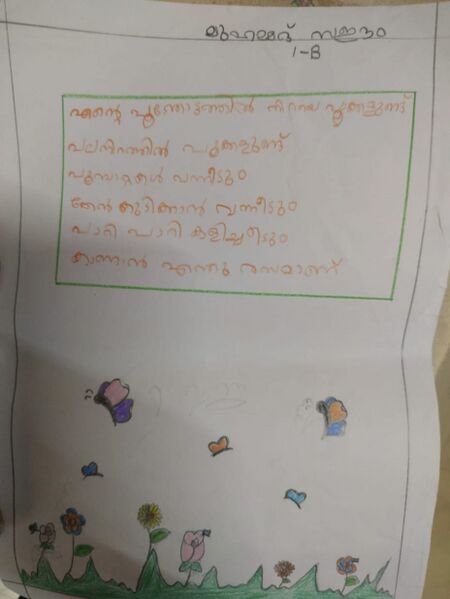 മുഹമ്മദ് സഈദ്
1-B
എന്റെ പൂന്തോട്ടത്തിൽ നിറയെ പൂക്കളുണ്ട്
പലനിറത്തിൽ പൂക്കളുണ്ട്
പൂമ്പാറ്റകൾ വന്നീടും
തേൻ കുടിക്കാൻ വന്നീടും
പാറി പാറി കളിച്ചീടും
കാണാൻ എന്തു രസമാണ്